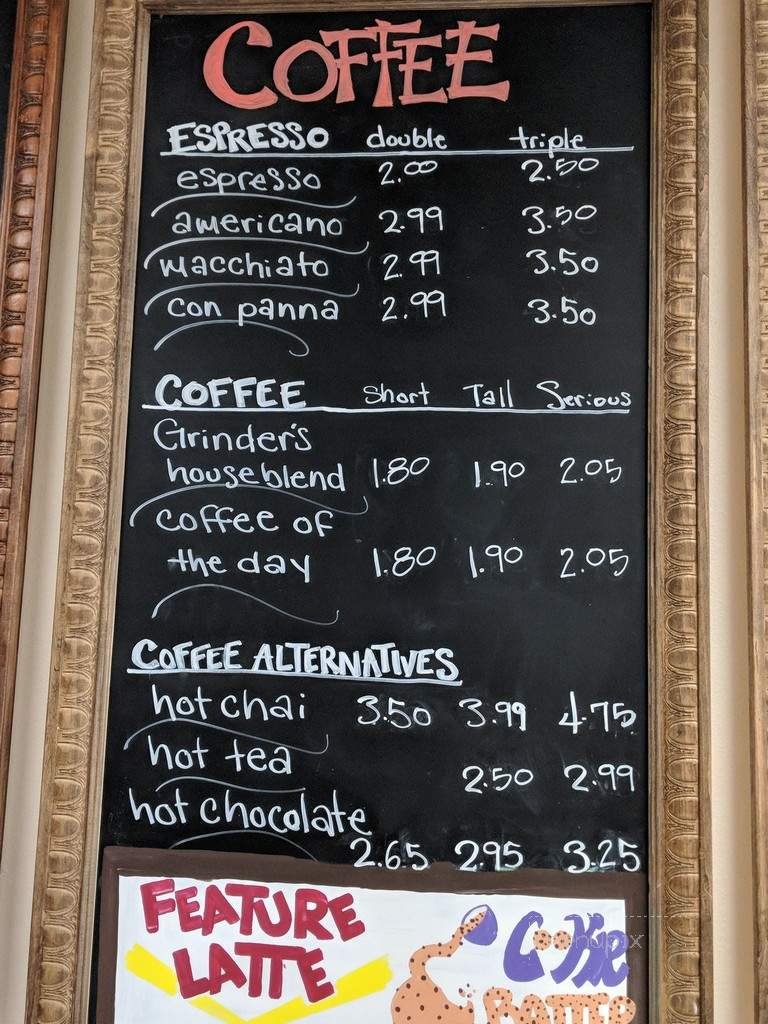 COFFEE
ESPRESSO double triple
espresso 2.00 2.50
americano 2.99 3.50
macchiato 2.99 3.50
con panna 2.99 3.50
COFFEE Short Tall Serious
Grinder's
houseblend 1.80 1.90 2.05
coffee of
the day 1.80 1.90 2.05
COFFEE ALTERNATIVES
hot chai 3.50 3.99 4.75
hot tea 2.50 2.99
hot chocolate
2.65 2.95 3.25
FEATURE
LATTE
COOKIE
BATTER